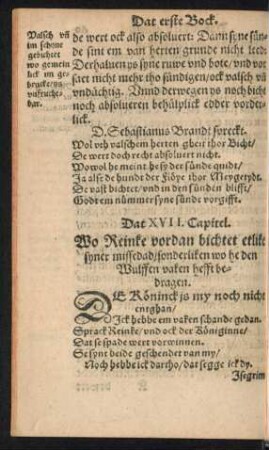 Dat erste Bock.
Valsch vñ
im schyne
gebuhert
wo gemein
lick im ge-
brucke/vñ
vnfrucht-
bar.
de wert ock also absoluert: Dann syne sün-
de sint em van herten grunde nicht leed:
Derhaluen ys syne ruwe vnd bote/ vnd vor
saet nicht mehr tho sündigen/ ock valsch vñ
vndächtig. Vnnd derwegen ys noch bicht
noch absolueren behülplick edder vörder-
lick.
D. Sebastianus Brandt spreckt.
Wol vth valschem herten gheit thor Bicht/
De wert doch recht absoluert nicht.
Wowol he meint he sy der sünde quidt/
Ja alse de hundt der Flöye thor Meygerydt.
De vast bichtet/ vnd in den sünden blifft/
Godt em nümmer syne sünde vorgifft.
Dat XVII. Capitel.
Wo Reinke vordan bichtet etlike
syner missedad/ sonderliken wo he den
Wulffen vaken hefft be-
dragen.
DE Köninck js my noch nicht
entghan/
Ick hebbe em vaken schande gedan.
Sprack Reinke/ vnd ock der Königinne/
Dat se spade wert vorwinnen.
Se synt beide geschendet van my/
Noch hebbe ick dartho/ dat segge ick dy.
Isegrim